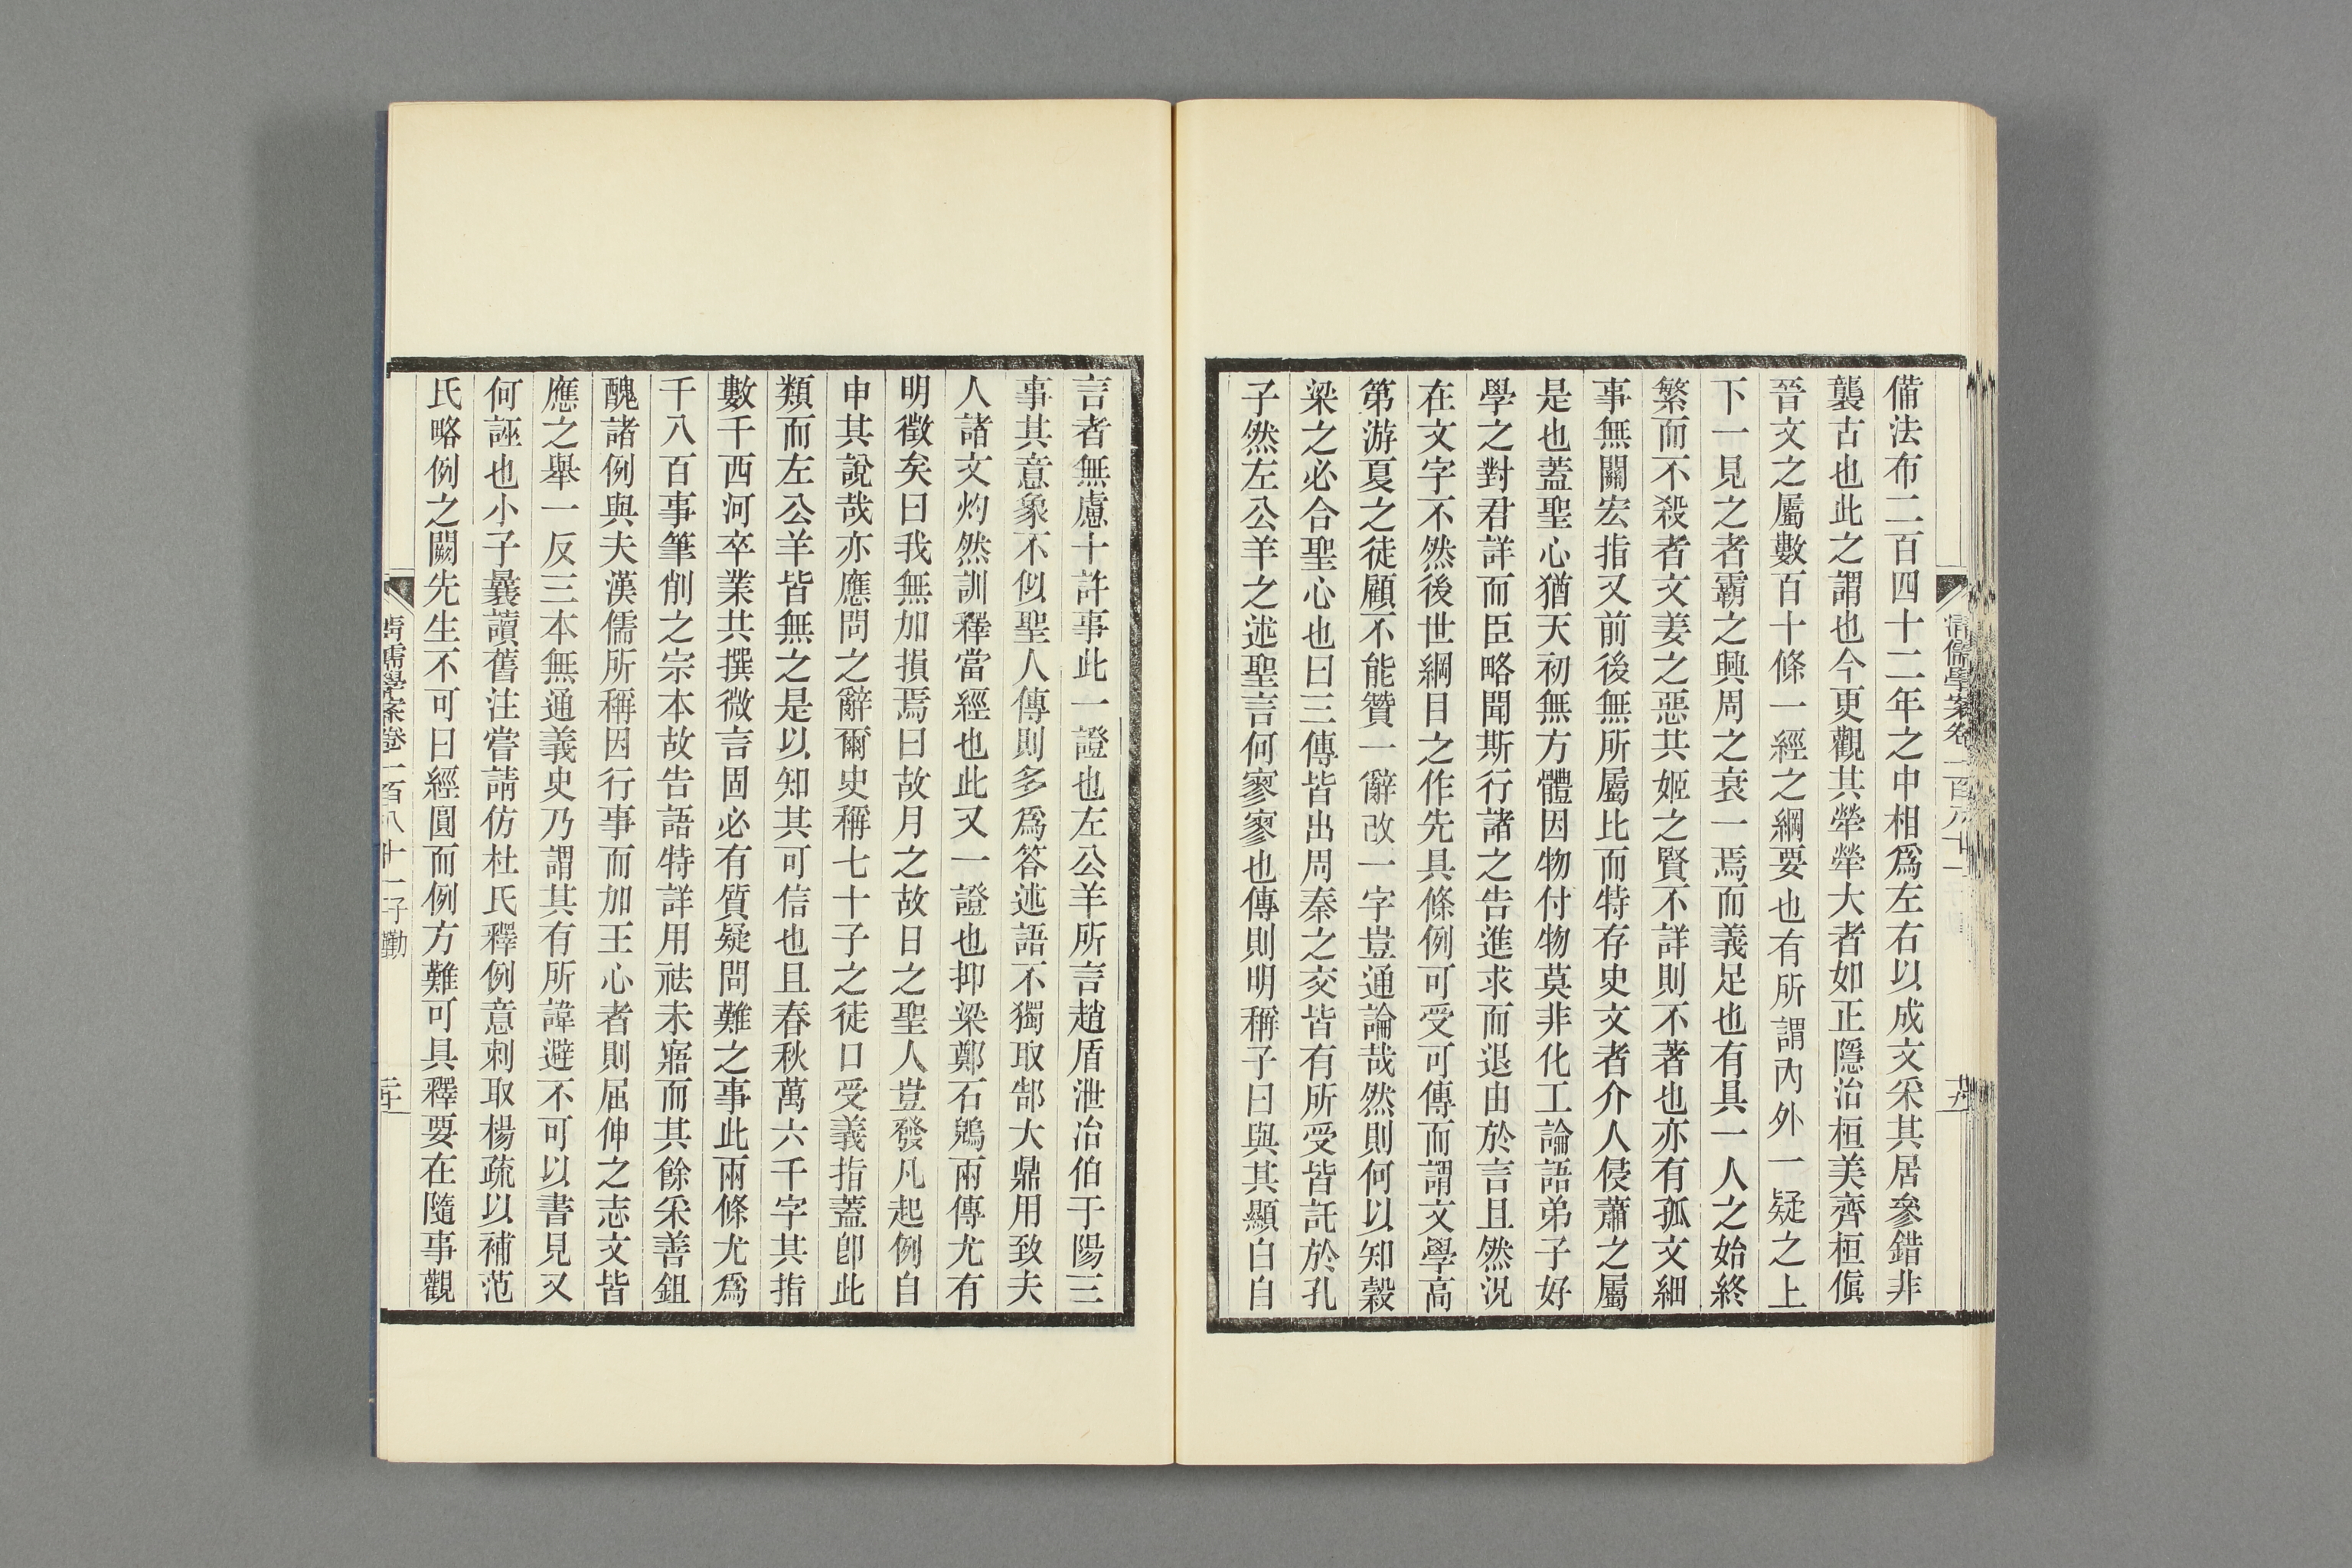 備法布二百四十二年之中相爲左右以成文采其居參錯非
襲古也此之謂也今更觀其犖犖大者如正隱治桓美齊桓傎
晉文之屬數百十條一經之綱要也有所謂內外一疑之上
下一見之者霸之興周之衰一焉而義足也有具一人之始終
繁而不殺者文姜之惡共姬之賢不詳則不著也亦有孤文細
事無關宏指又前後無所屬比而特存史文者介人侵蕭之屬
是也蓋聖心猶天初無方體因物付物莫非化工論語弟子好
學之對君詳而臣略聞斯行諸之告進求而退由於言且然況
在文字不然後世綱目之作先具條例可受可傳而謂文學高
第游夏之徒顧不能贊一辭改一字豈通論哉然則何以知穀
梁之必合聖心也曰三傳皆出周秦之交皆有所受皆託於孔
子然左公羊之述聖言何寥寥也傳則明稱子曰與其顯白自
言者無慮十許事此一證也左公羊所言趙盾泄冶伯于陽三
事其意象不似聖人傳則多爲答述語不獨取郜大鼎用致夫
人諸文灼然訓釋當經也此又一證也抑梁鄭石鶂兩傳尤有
明徵矣曰我無加損焉曰故月之故日之聖人豈發凡起例自
申其說哉亦應問之辭爾史稱七十子之徒口受義指蓋卽此
類而左公羊皆無之是以知其可信也且春秋萬六千字其指
數千西河卒業共撰微言固必有質疑問難之事此兩條尤爲
千八百事筆削之宗本故告語特詳用祛未寤而其餘采善鉏
醜諸例與夫漢儒所稱因行事而加王心者則屈伸之志文皆
應之舉一反三本無通義史乃謂其有所諱避不可以書見又
何誣也小子曩讀舊注嘗請仿杜氏釋例意刺取楊疏以補范
氏略例之闕先生不可曰經圓而例方難可具釋要在隨事觀
清儒學案卷一百八十一子勤